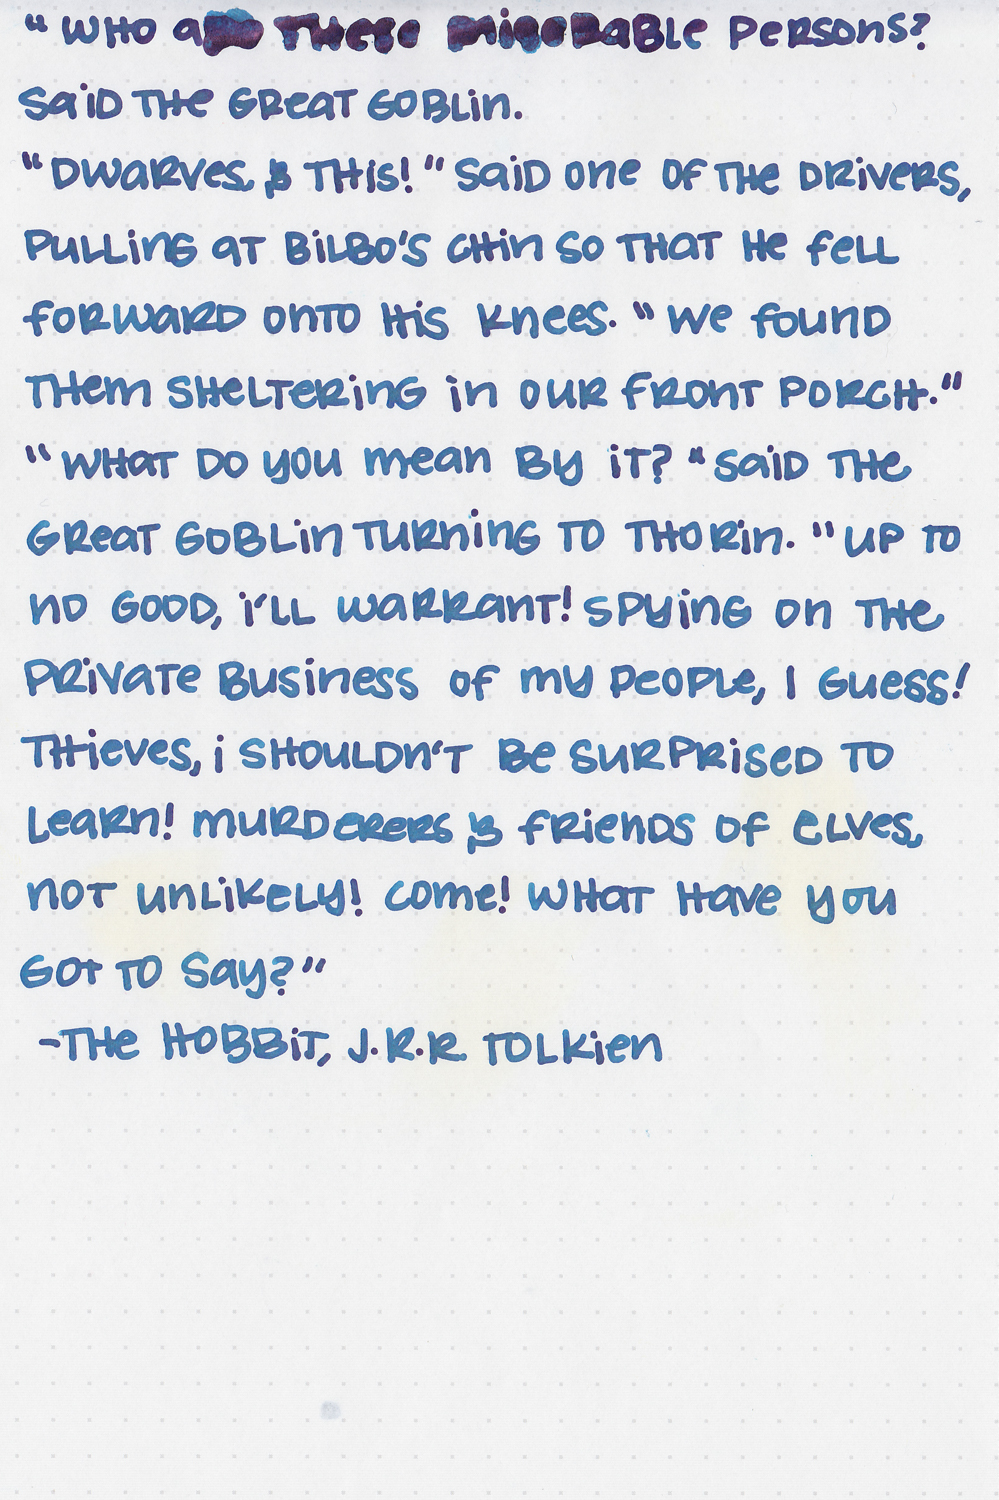 "Who are these miserable persons?
said the Great Goblin.
"Dwarves, & this!" said one of the drivers,
pulling at Bilbo's chin so that he fell
forward onto his knees. "We found
them sheltering in our front porch."
"What do you mean by it? "said the
Great Goblin turning to Thorin. "Up to
no good, i'll warrant! Spying on the
private business of my people, I guess!
Thieves, i shouldn't be surprised to
learn! Murderers & friends of elves,
not unlikely! Come! What have you
got to say?"
-The Hobbit, J.R.R. Tolkien